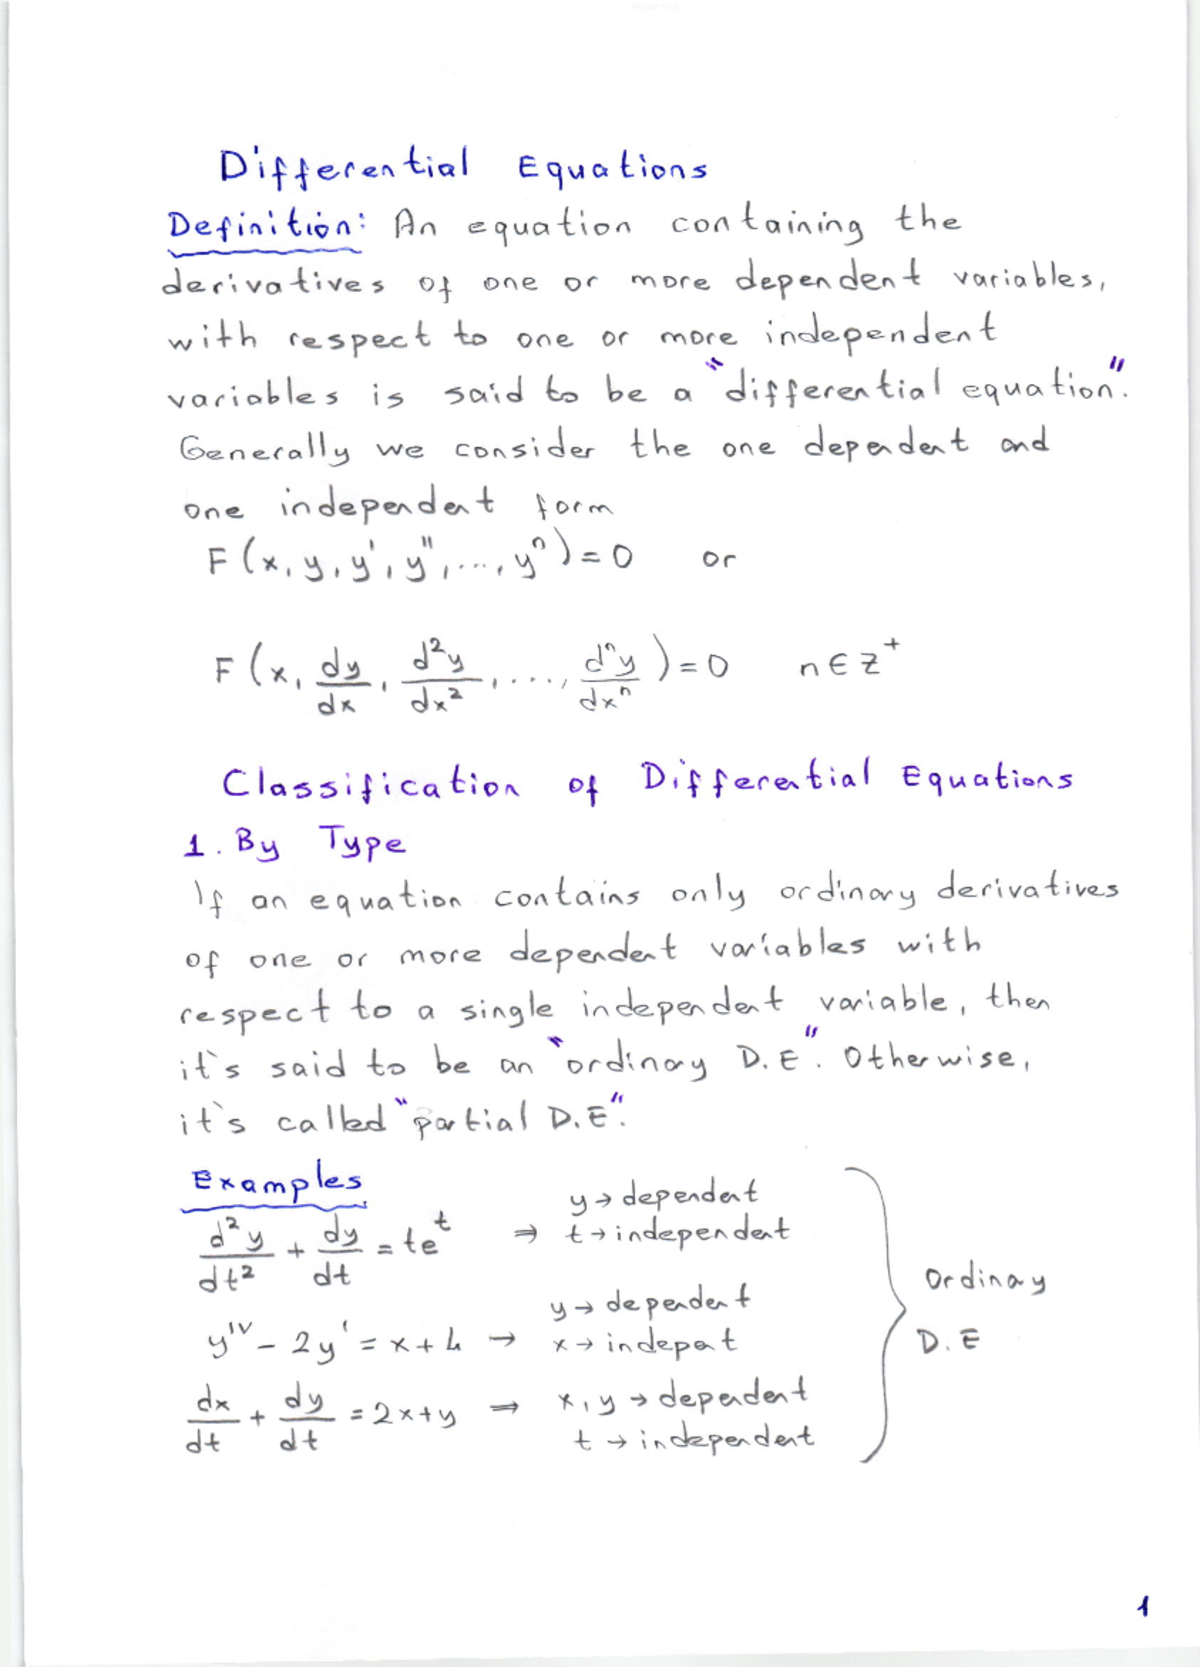 Differential Equations
Definition: An equation containing the
derivatives of one or more dependent variables,
with respect to one or more independent
variables is said to be a "differential equation".
Generally we consider the one dependent and
one independent form
F(x, y, y', y'', ..., yⁿ) = 0 or
F(x, dy/dx, d²y/dx², ..., dⁿy/dxⁿ) = 0 n ∈ Z⁺
Classification of Differential Equations
1. By Type
If an equation contains only ordinary derivatives
of one or more dependent variables with
respect to a single independent variable, then
it's said to be an "ordinary D.E". Otherwise,
it's called "partial D.E".
Examples
d²y/dt² + dy/dt = teᵗ ⇒ y → dependent
t → independent
yᴵⱽ - 2y' = x + 4 → y → dependent
x → indepent
dx/dt + dy/dt = 2x+y ⇒ x, y → dependent
t → independent
Ordinay
D.E
1